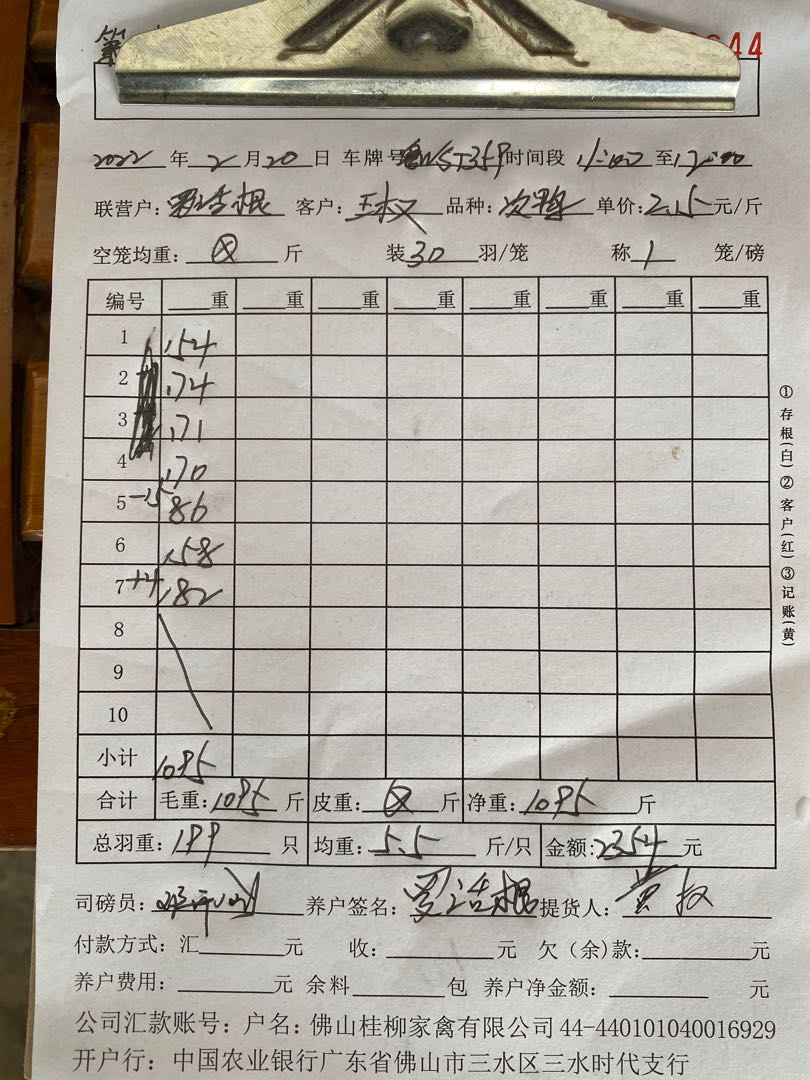 44
2022 年 2 月 20 日 车牌号 ST359 时间段 11:00 至 12:00
联营户: 罗浩根 客户: 王权 品种: 次鸭 单价: 2.15 元/斤
空笼均重: 斤 装 30 羽/笼 称 1 笼/磅
编号 重 重 重 重 重 重 重 重
1 154
2 174
3 171
4 170
5 -15 86
6 158
7 +4 182
8
9
10
小计 1095
合计 毛重: 1095 斤 皮重: 斤 净重: 1095 斤
总羽重: 199 只 均重: 5.5 斤/只 金额: 2354 元
司磅员: 养户签名: 罗浩根 提货人: 黄权
付款方式: 汇 元 收: 元 欠(余)款: 元
养户费用: 元 余料 包 养户净金额: 元
公司汇款账号: 户名: 佛山桂柳家禽有限公司 44-440101040016929
开户行: 中国农业银行广东省佛山市三水区三水时代支行
①存根(白)②客户(红)③记账(黄)